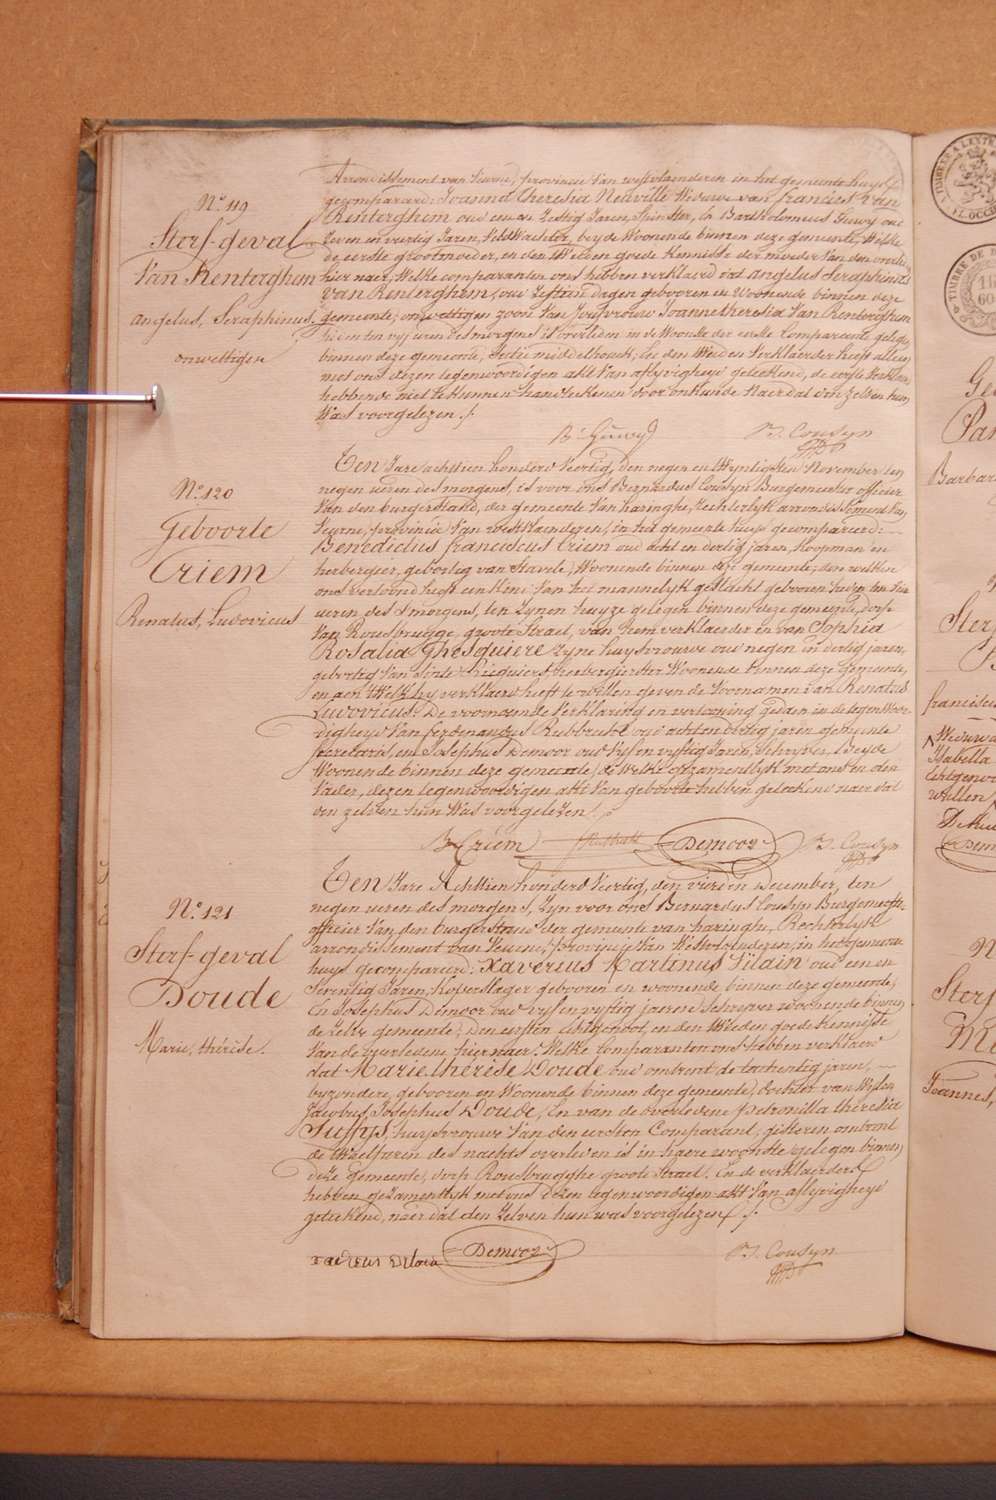 N.° 119
Sterf-geval
Van Renterghem
angelus, Seraphinus,
onwettigen
Arrondissement van Veurne, provincie Van westvlaenderen in het gemeente huys
gecompareerd: Joanna Theresia Neuville Weduwe van francies Van
Renterghem oud een en Zestig Jaren, Spinster, En Bartholomeus Huwy oud
Zeven en veertig Jaren, VeldWachter, beyde Woonende binnen deze gemeente, Welke
de eerste grootmoeder, en den tWeeden goede Kennisse der moeder Van den overled
hier naer, Welke comparanten ons hebben verklaerd dat angelus Seraphinus
van Renterghem, oud Zestien dagen gebooren en Woonende binnen deze
gemeente, onwettigen zoon Van Jongvrouw Joanne theresia Van Renterghem
binnen deze gemeente, Sectie middelhouck, En den tWeeden Verklaerder heeft alleen
met ons dezen tegenwoordigen akte Van aflyvigheyd geteekend, de eerste Verklaer
hebbende niet te Kunnen handteekenen door onkunde Naer dat den zelven hun
Was voorgelezen ./.
B: Huwy B. J. Cousyn
N.° 120
Geboorte
Criem
Renatus, Ludovicus
Ten Jare achttien honderd Veertig, den negen en tWyntigsten November ten
negen uren des morgens, is voor ons Bernardus Cousyn Burgemeester officier
Van den burgerstand, der gemeente Van haringhe, rechterlyk arrondissement Van
Veurne, provincie Van westvlaenderen, in het gemeente huys gecompareerd:
Benedictus franciscus Criem oud acht en dertig jaren, Koopman en
herbergier, geboortig van Stavele, Woonende binnen deze gemeente, den welken
ons vertoond heeft een Kind Van het mannelyk geslacht gebooren
uren des s'morgens, ten Zynen huyze gelegen binnen deze gemeente, dorp
Van Rousbrugge, groote Straet, van hem verklaerder en van Sophia
Rosalia Ghesquiere Zyne huysvrouwe oud negen en dertig jaren,
geboortig Van Sinte Rieguiers herbergierster Woonende binnen deze gemeente,
en aen Welk hy verklaerd heeft te willen geven de Voornamen Van Renatus
Ludovicus. De voornoemde Verklaring en vertooning gedaen in de tegenWoor-
digheyd Van ferdenandus Rubbrecht oud acht en dertig jaren gemeente
secretaris, en Josephus Demoor oud Vyf en vyftig Jaren, Schryver, Beyde
Woonende binnen deze gemeente, de Welke gezamentlyk met ons en den
Vader, dezen tegenwoordigen akte Van geboorte hebben geteekend naer dat
den zelven hun Was voorgelezen ./.
B Criem Demoor B. J. Cousyn
N.° 121
Sterf-geval
Doude
Marie, thérèse.
Ten Jare Achttien honderd Veertig, den vierden December, ten
negen uren des morgens, Zyn voor ons Bernardus Cousyn Burgemeester
officier Van den burgerstand der gemeente van haringhe, Rechterlyk
arrondissement van Veurne, provincie Van Westvlaenderen, in het gemeente
huys gecompareerd: Xaverius Martinus Vilain oud een en
Seventig Jaren, Koperslager gebooren en woonende binnen deze gemeente,
En Josephus Demoor oud vyf en vyftig jaeren Schryver woonende binnen
de Zelve gemeente, Den eersten echtgenoot, en den tWeeden goede kennisse
Van de overledene hier naer. Welke Comparanten ons hebben verklaerd
dat Marie thérèse Doude oud ontrent de tachentig jaren,
byzondere, gebooren en Woonende binnen deze gemeente, dochter van Wylen
Jacobus Josephus Doude, En van de overledene petronilla theresia
Suffys, huysvrouwe Van den eersten Comparant, gisteren ontrent
de twaelf uren des nachts overleden is in haere woonste gelegen binnen
deze gemeente, dorp Rousbrugghe groote Straet. En de verklaerders
hebben gezamentlyk met ons dezen tegenwoordigen akte Van aflyvigheyd
geteekend, naer dat den Zelven hun was voorgelezen ./.
Demoor B. J. Cousyn